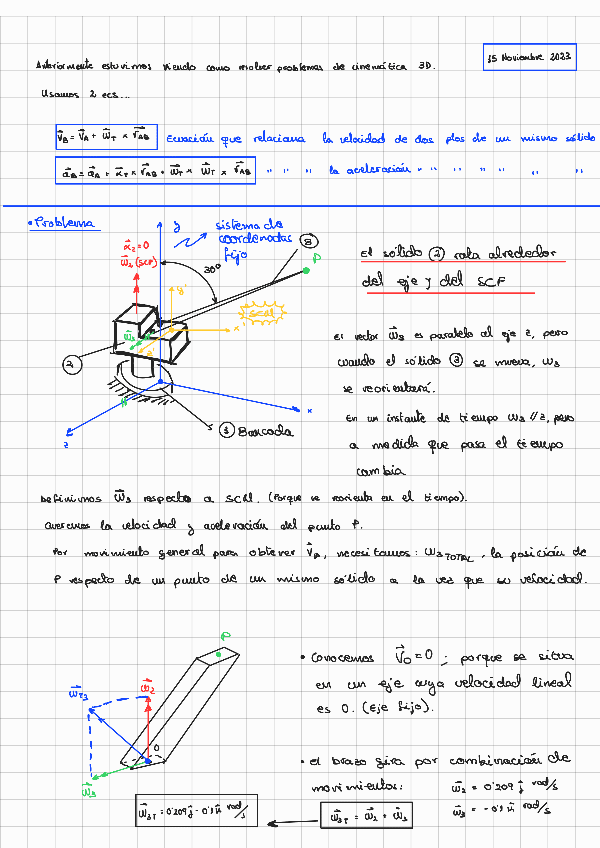 15 Noviembre 2023
Anteriormente estuvimos viendo como resolver problemas de cinemática 3D.
Usamos 2 ecs...
v⃗B = v⃗A + w⃗T × r⃗AB Ecuación que relaciona la velocidad de dos ptos de un mismo sólido
a⃗B = a⃗A + α⃗T × r⃗AB + w⃗T × w⃗T × r⃗AB " " " la aceleración " " " " " " "
• Problema
y
sistema de
coordenadas
fijo
α⃗2 = 0
w⃗2 (SCF)
30º
3
P
y'
SCM
x'
w⃗3
2
x
z
1 Bancada
El sólido 2 rota alrededor
del eje y del SCF
El vector w⃗3 es paralelo al eje z, pero
cuando el sólido 3 se mueva, w3
se reorientará.
En un instante de tiempo w3 // z, pero
a medida que pasa el tiempo
cambia
Definimos w⃗3 respecto a SCM. (Porque se reorienta en el tiempo).
Queremos la velocidad y aceleración del punto P.
Por movimiento general para obtener v⃗A, necesitamos: w3TOTAL, la posición de
P respecto de un punto de un mismo sólido a la vez que su velocidad.
P
w⃗T3
w⃗2
O
w⃗3
• Conocemos v⃗O = 0 ; porque se situa
en un eje cuya velocidad lineal
es 0. (Eje fijo).
• El brazo gira por combinación de
movimientos: w⃗2 = 0'209 j⃗ rad/s
w⃗3 = -0'1 k⃗ rad/s
w⃗3T = 0'209 j⃗ - 0'1 k⃗ rad/s
w⃗3T = w⃗2 + w⃗3